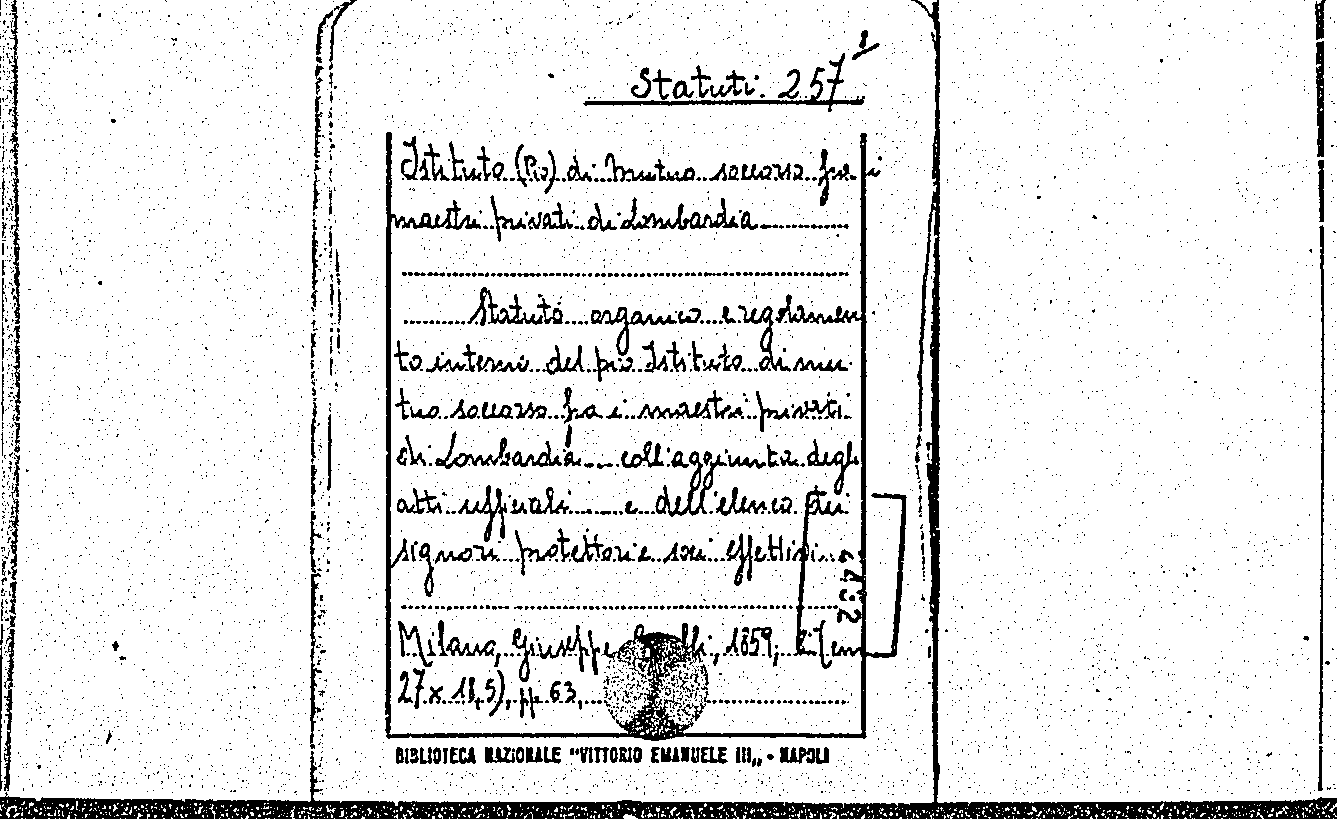 Statuti. 257 1
Istituto (Pio) di mutuo soccorso fra i
maestri privati di Lombardia
Statuto organico e regolamen
to interno del pio Istituto di mu
tuo soccorso fra i maestri privati
di Lombardia... coll'aggiunta degli
atti ufficiali ... e dell'elenco dei
signori protettori e soci effettivi...
2432
Milano, Giuseppe, 1859, (cm
27x18,5), pp. 63,
BIBLIOTECA NAZIONALE "VITTORIO EMANUELE III„ - NAPOLI